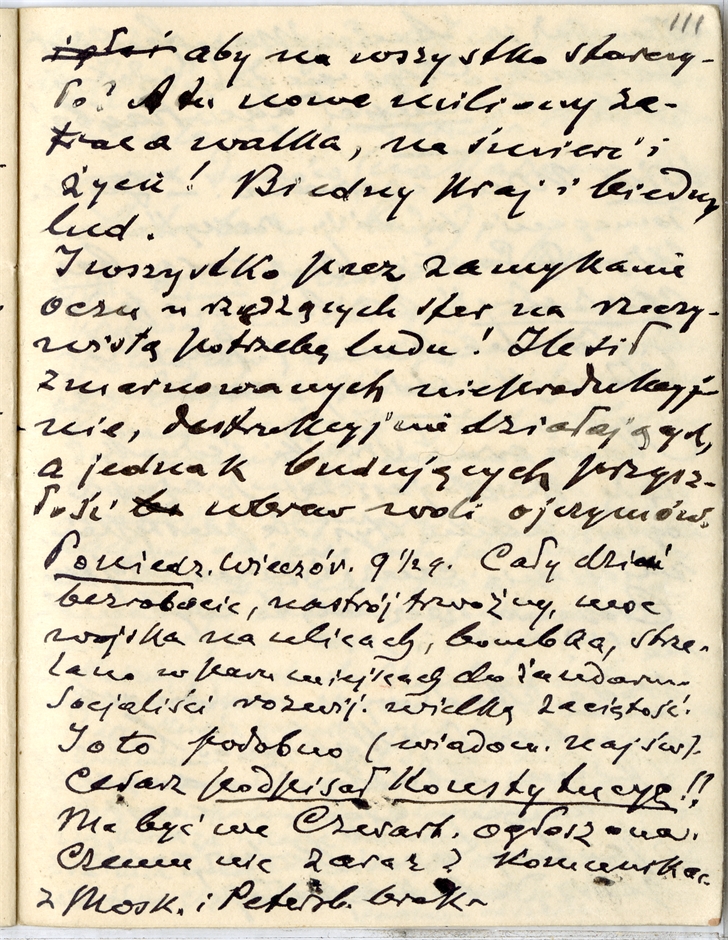 111
aby na wszystko starczy-
ło? A tu nowe miliony za-
walka, na śmierć i
życie! Biedny kraj i biedny
lud.
I wszystko przez zamykanie
oczu u rządzących sfer na rzeczy-
wistą potrzebę ludu! Ile sił
zmarnowanych nieprodukcyj-
nie, destrukcyjnie działających,
a jednak budujących przysz-
łość wbrew woli ojczymów.
Poniedz. wieczór. 9 1/2 g. Cały dzień
bezrobocie, nastrój trwożny, moc
wojska na ulicach, bomba, strze-
lano w paru miejscach do żandarm.
Socjaliści rozwij. wielką zaciętość.
I oto podobno (wiadom. najśw).
Cesarz podpisał Konstytucyę!!
Ma być we Czwart. ogłoszona.
Czemu nie zaraz? Komunikac.
z Mosk. i Petersb. brak